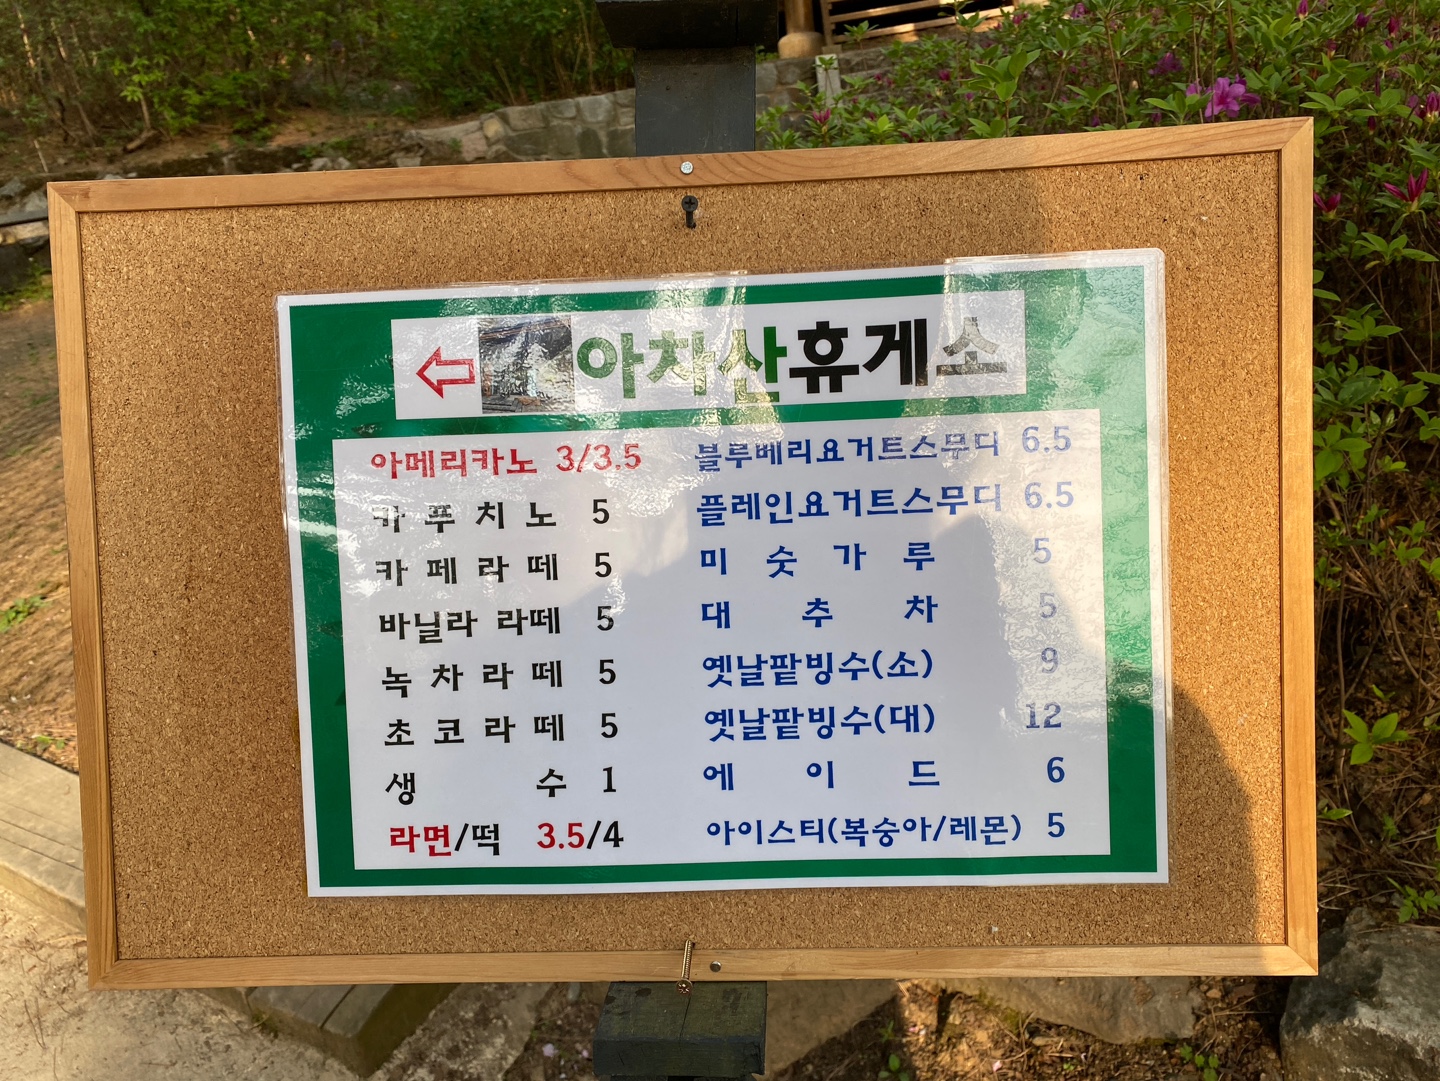 아차산휴게소
아메리카노 3/3.5
카푸치노 5
카페라떼 5
바닐라 라떼 5
녹차라떼 5
초코라떼 5
생수 1
라면/떡 3.5/4
블루베리요거트스무디 6.5
플레인요거트스무디 6.5
미숫가루 5
대추차 5
옛날팥빙수(소) 9
옛날팥빙수(대) 12
에이드 6
아이스티(복숭아/레몬) 5